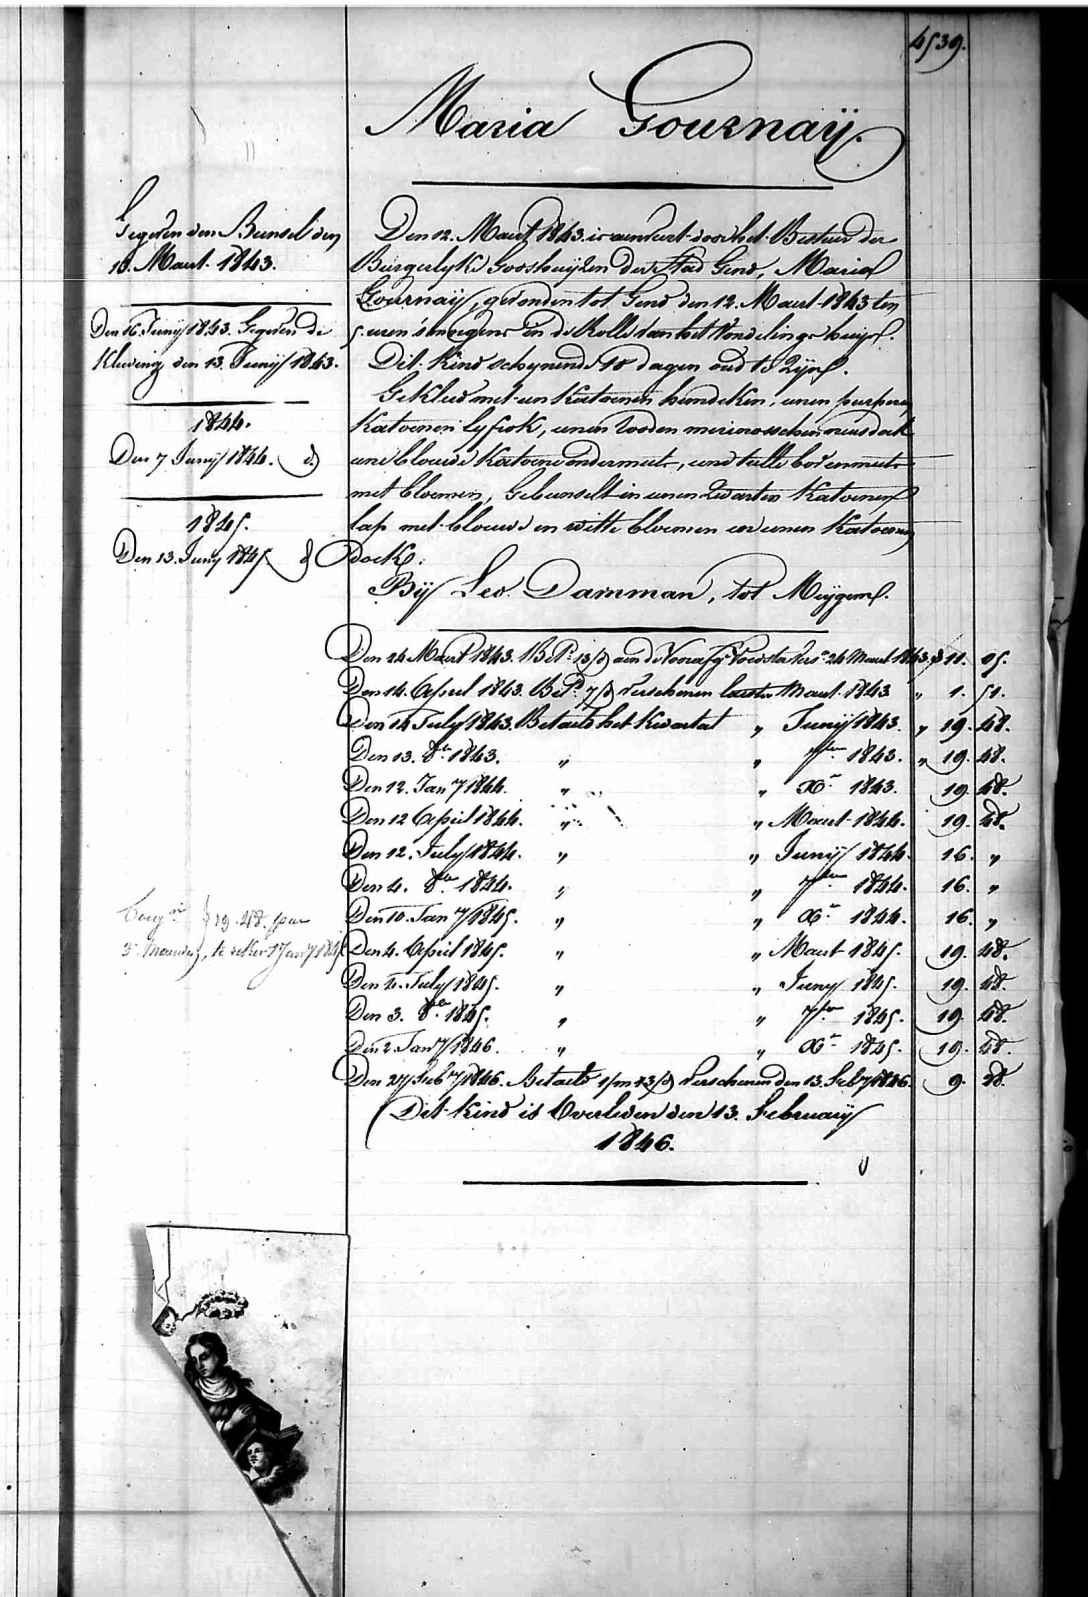 4539.
Maria Gournaÿ.
Gegeven den Bunsel den
18. Maart 1843.
Den 16. Junÿ 1843. Gegeven de
Kleeding den 13. Junÿ 1843.
1844.
Den 7 Junÿ 1844. d.
1845.
Den 13. Juny 1845 d
Den 12. Maart 1843. is aenveert door het Bestuer der
Burgerlyke Godshuÿzen der Stad Gend, Maria
Gournaÿ, gevonden tot Gend den 12. Maart 1843 ten
5 uren 's morgens in de Rolle van het Vondelings huys.
Dit Kind schynende 10 dagen oud te Zyn.
Gekleed met een Katoenen hemdeken, eenen purperen
Katoenen lyfrok, eenen rooden merinosschen neusdoek
eene blauwe Katoene ondermuts, eene tulle bovenmuts
met bloemen, Gebunselt in eenen Zwarten Katoenen
lap met blauwe en witte bloemen en eenen Katoenen
doek.
Bÿ Leo. Damman, tot Meÿgem.
Den 24 Maart 1843. Bet. 13/d aen de Voedster 24 Maart 1843. 11. 05.
Den 14. April 1843. Bet. 7/d Verschenen Maart 1843 „ 1. 51.
Den 14 July 1843. Betaelt het Kwartael „ Junÿ 1843. „ 19. 48.
Den 13. 8er 1843. „ „ 7ber 1843. „ 19. 48.
Den 12. Jany 1844. „ „ Xr 1843. 19. 48.
Den 12 April 1844. „ „ Maart 1844. 19. 48.
Den 12. July 1844. „ „ Junÿ 1844. 16. „
Den 4. 8er 1844. „ „ 7ber 1844. 16. „
Den 10. Jany 1845. „ „ Xr 1844. 16. „
19.48. par
3 maenden, 1 Jany 1845
Den 4. April 1845. „ „ Maart 1845. 19. 48.
Den 4. July 1845. „ „ Juny 1845. 19. 48.
Den 3. 8er 1845. „ „ 7ber 1845. 19. 48.
Den 2 Jany 1846. „ „ Xr 1845. 19. 48.
Den 27 Feby 1846. Betaelt 1/m 13/d Verschenen den 13. Feby 1846. 9. 28.
Dit Kind is Overleden den 13. Februarÿ
1846.